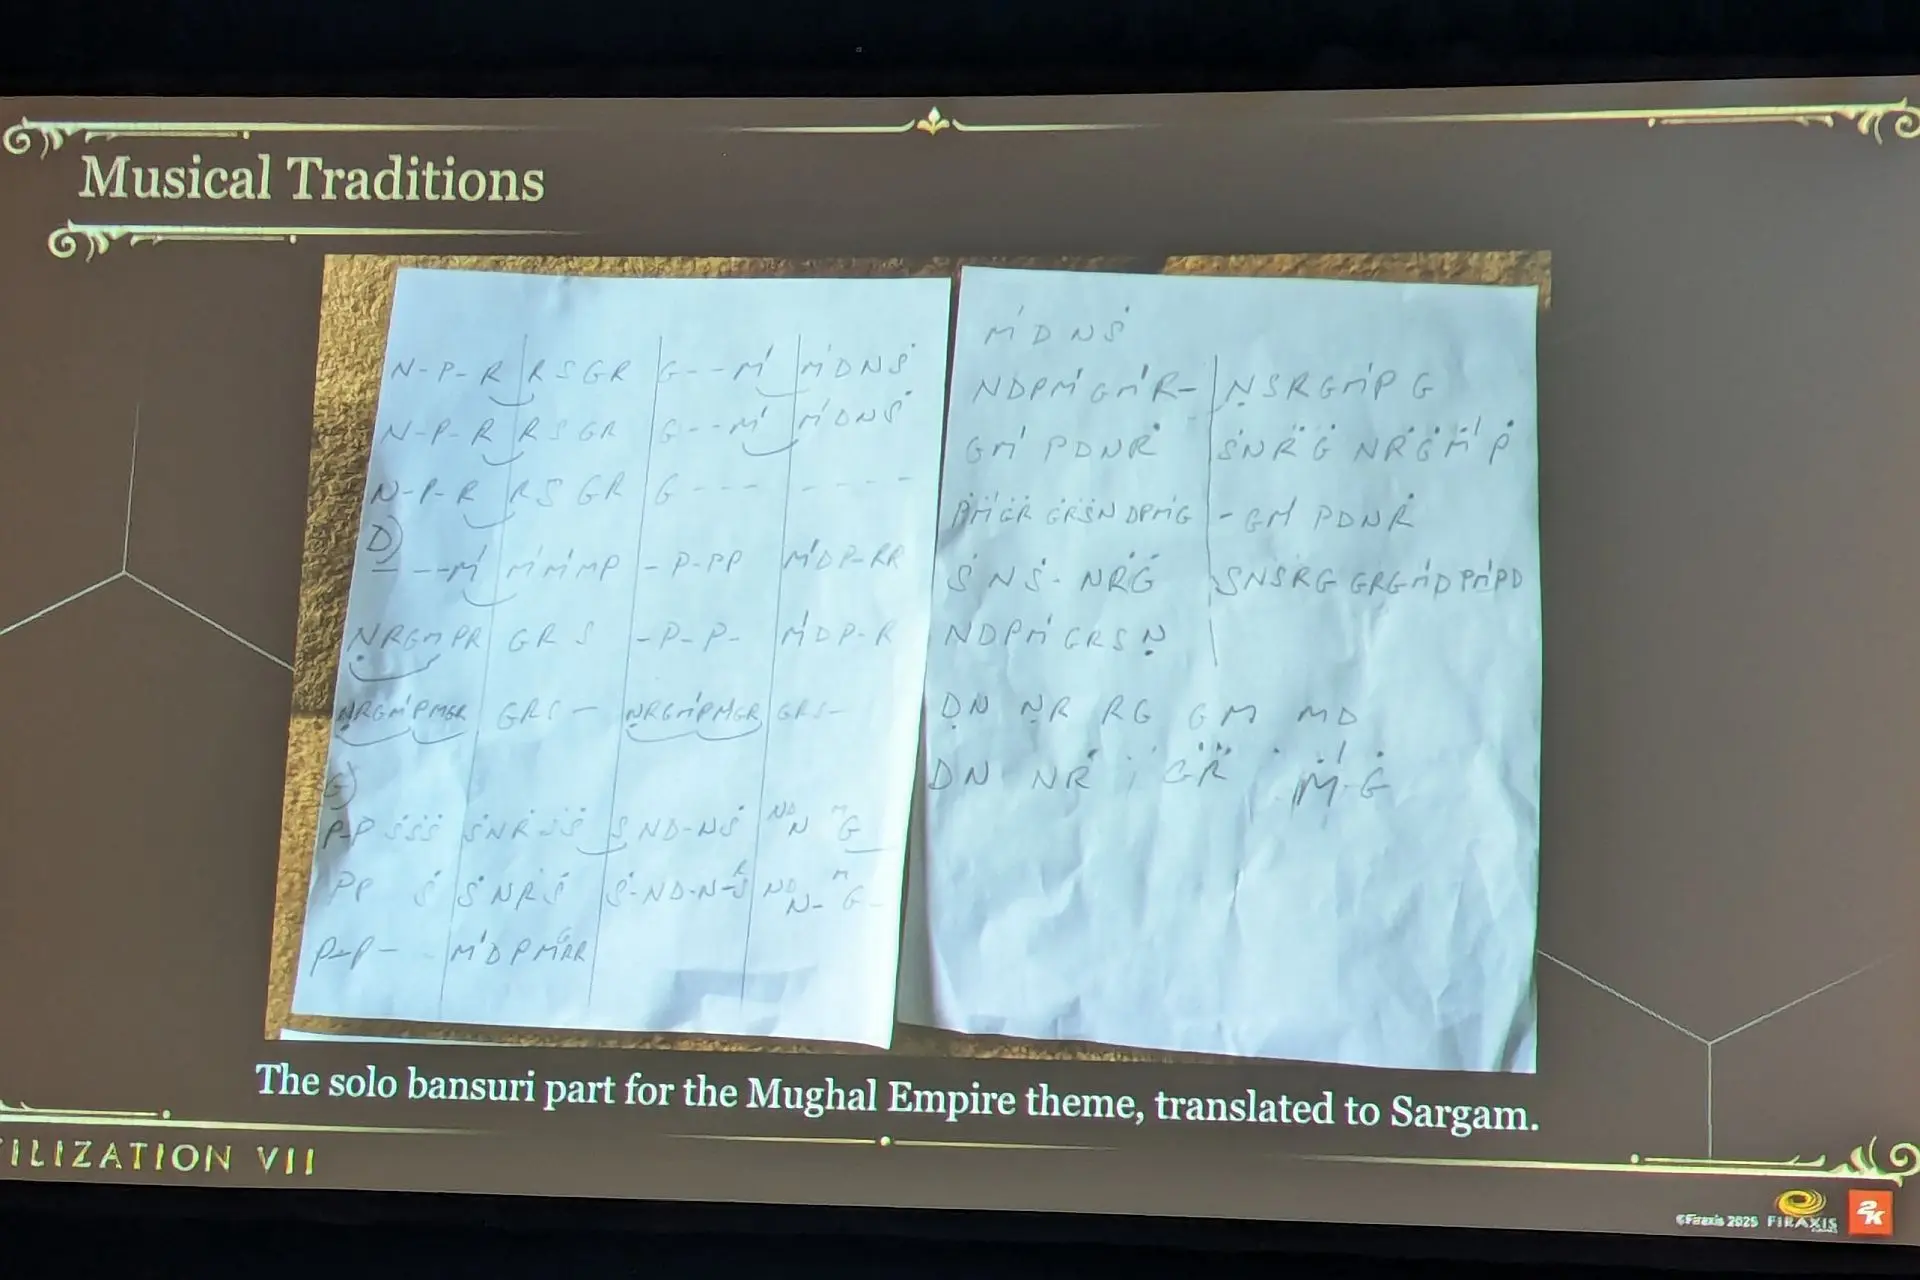 Musical Traditions
N-P-R | RSGR | G---M' | M'DNṠ
N-P-R | RSGR | G---M' | M'DNṠ
N-P-R | RSGR | G--- | ----
D)
---M' | M'M'MP | -P-PP | M'DP-RR
ṆRGMPR | GRS | -P-P- | M'DP-R
ṆRGM'PMGR | GRS- | ṆRGM'PMGR | GRS-
P-P ṠṠṠ | ṠNṘṠṠ | SND-NṠ | NDN MG
PP Ṡ | ṠNRṠ | Ṡ-ND-N-RṠ | NDN- MG-
P-P- | M'DPMGRR
M'DNṠ
NDPM'GM'R- | ṆSRGM'PG
GM' PDNṘ | ṠNṘĠ NṘĠṀ'Ṗ
ṖṀ'ĠṘ ĠṘṠN DPM'G | -GM PDNṘ
ṠNṠ- NṘĠ | SNSRG GRGM'DPM'PD
NDPM'GRSṆ
ḌN ṆR RG GM MD
DN NṘ ĠṘ Ṁ'-Ġ
The solo bansuri part for the Mughal Empire theme, translated to Sargam.
ILIZATION VII
©Firaxis 2025 FIRAXIS GAMES 2K